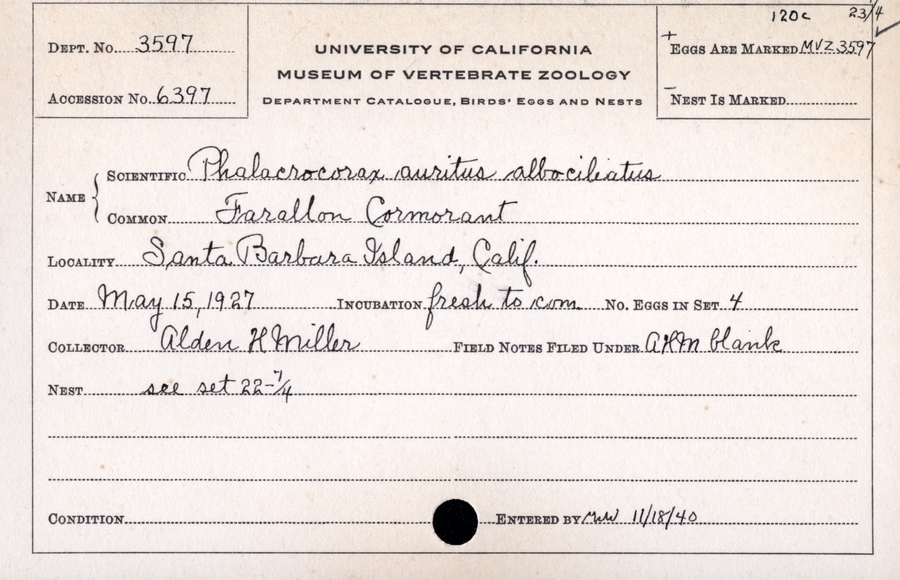 120c 23/4
DEPT. NO. 3597
UNIVERSITY OF CALIFORNIA
+ EGGS ARE MARKED MVZ 3597
MUSEUM OF VERTEBRATE ZOOLOGY
ACCESSION NO. 6397
DEPARTMENT CATALOGUE, BIRDS' EGGS AND NESTS
- NEST IS MARKED
NAME
SCIENTIFIC Phalacrocorax auritus albociliatus
COMMON Farallon Cormorant
LOCALITY Santa Barbara Island, Calif.
DATE May 15, 1927 INCUBATION fresh to com. NO. EGGS IN SET 4
COLLECTOR Alden H Miller FIELD NOTES FILED UNDER AHM blank
NEST see set 22-7/4
CONDITION ENTERED BY 11/18/40